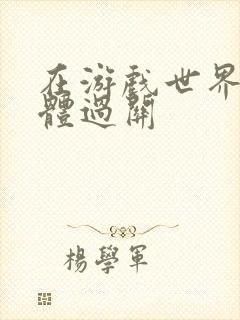 在游戏世界
體過關
楊學軍